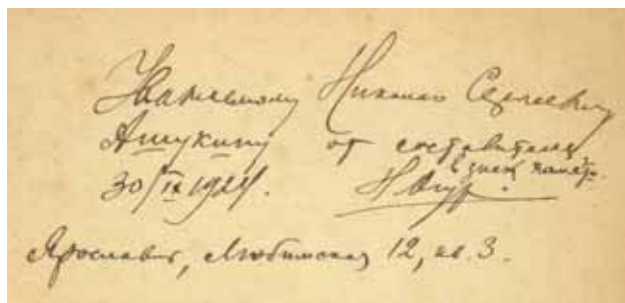 Уважаемому Николаю Сергеевичу
Ашукину от составителя
в знак памяти.
30/IX 1924.
Ярославль, Любимская 12, кв. 3.